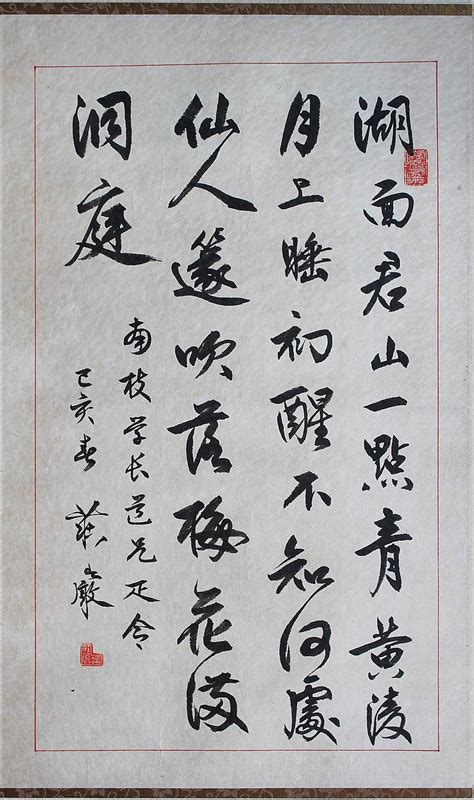 湖面君山一點青黃陵
月上睡初醒不知何處
仙人邃吹落梅花滿
洞庭
南枝学长道兄正令
己亥春 嚴